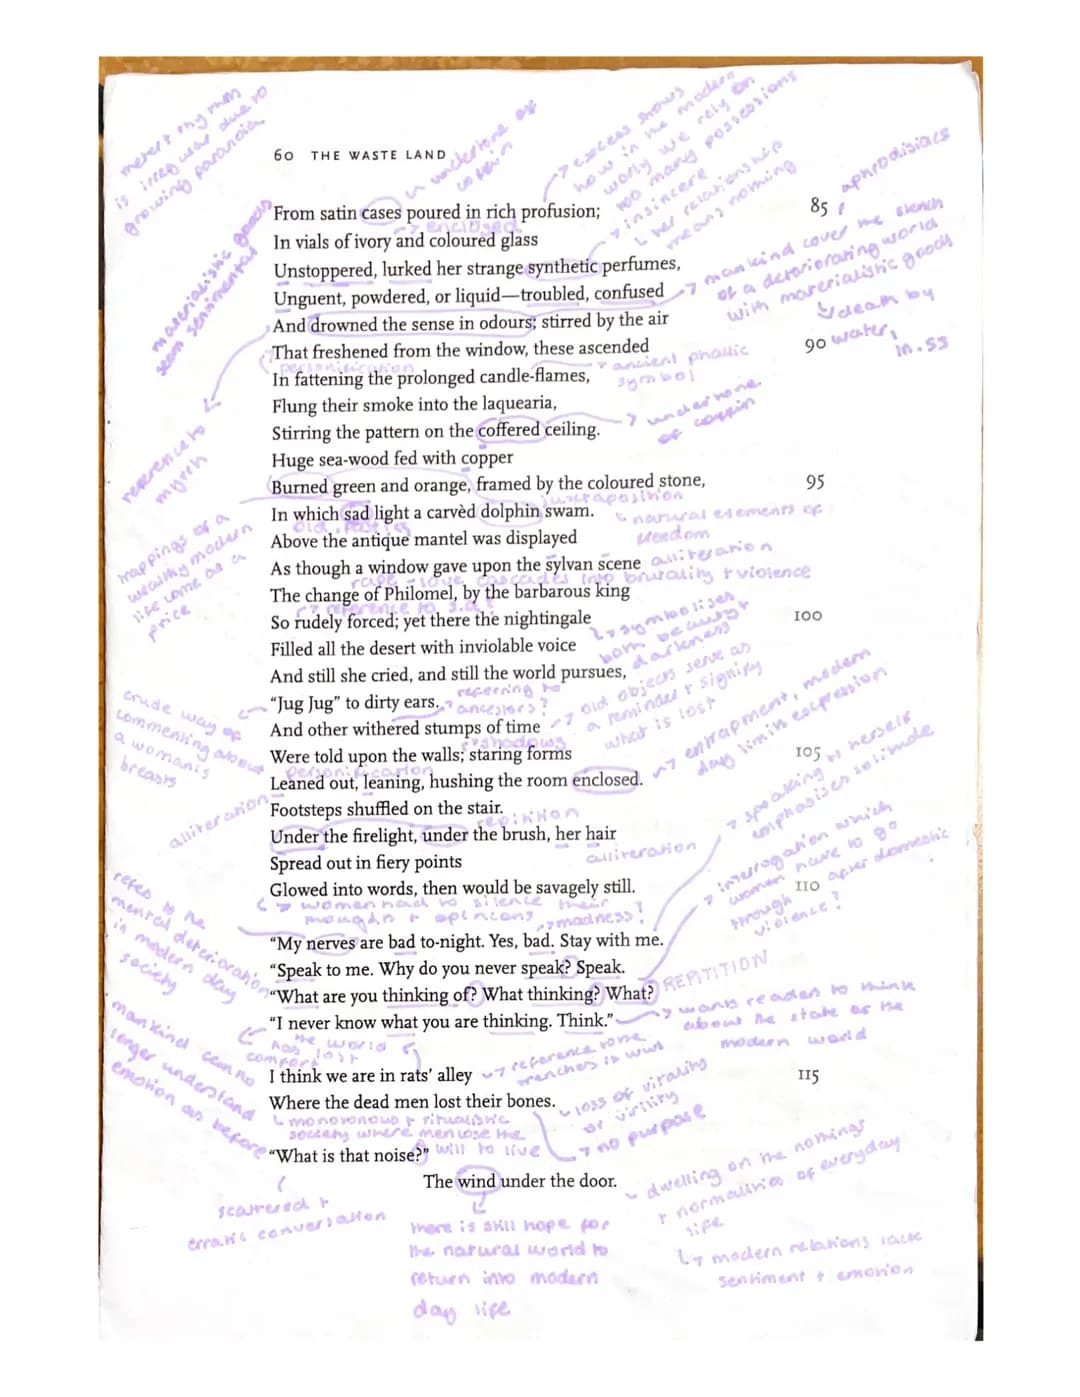 60 THE WASTE LAND
meter + rhythm
is irregular due to
growing paranoia
undertone of
coffin
excess shows
how in the modern
world we rely on
too many possessions
insincere
her relationship
means nothing
aphrodisiacs
materialistic goods
seem sentimental
From satin cases poured in rich profusion; 85
enclosed
In vials of ivory and coloured glass
Unstoppered, lurked her strange synthetic perfumes,
Unguent, powdered, or liquid—troubled, confused
mankind cover the stench
of a deteriorating world
with materialistic goods
And drowned the sense in odours; stirred by the air
death by
water,
in.53
That freshened from the window, these ascended 90
personification
ancient phallic
symbol
In fattening the prolonged candle-flames,
Flung their smoke into the laquearia,
undertone
of coffin
Stirring the pattern on the coffered ceiling.
reference to
myrrh
Huge sea-wood fed with copper
Burned green and orange, framed by the coloured stone, 95
juxtaposition
In which sad light a carvèd dolphin swam.
natural elements of
freedom
trappings of a
wealthy modern
life come at a
price
Above the antique mantel was displayed
As though a window gave upon the sylvan scene
alliteration
rape - love cascades into brutality + violence
The change of Philomel, by the barbarous king
reference to
So rudely forced; yet there the nightingale 100
symbolises
both beauty +
darkness
Filled all the desert with inviolable voice
And still she cried, and still the world pursues,
"Jug Jug" to dirty ears.
referring to
ancestors?
crude way of
commenting about
a woman's
breasts
And other withered stumps of time
old objects serve as
a reminder + signify
what is lost
shadows
Were told upon the walls; staring forms 105
personification
Leaned out, leaning, hushing the room enclosed.
entrapment, modern
day limit expression
alliteration
Footsteps shuffled on the stair.
repitition
Under the firelight, under the brush, her hair
alliteration
Spread out in fiery points
speaking to herself
emphasises solitude
Glowed into words, then would be savagely still. 110
women had to silence their
thoughts + opinions
madness?
interrogation which
women have to go
through after domestic
violence?
refers to the
mental deterioration
in modern day
society
"My nerves are bad to-night. Yes, bad. Stay with me.
"Speak to me. Why do you never speak? Speak.
"What are you thinking of? What thinking? What?
REPITITION
"I never know what you are thinking. Think."
wants readers to think
about the state of the
modern world
the world
has lost
comfort
mankind can no
longer understand
emotion as before
I think we are in rats' alley 115
reference to the
trenches in ww1
Where the dead men lost their bones.
loss of vitality
or virility
no purpose
monotonous + ritualistic
society where men lose the
will to live
"What is that noise?"
scattered +
erratic conversation
The wind under the door.
there is still hope for
the natural world to
return into modern
day life
dwelling on the nothings
+ normalities of everyday
life
modern relations lack
sentiment + emotion